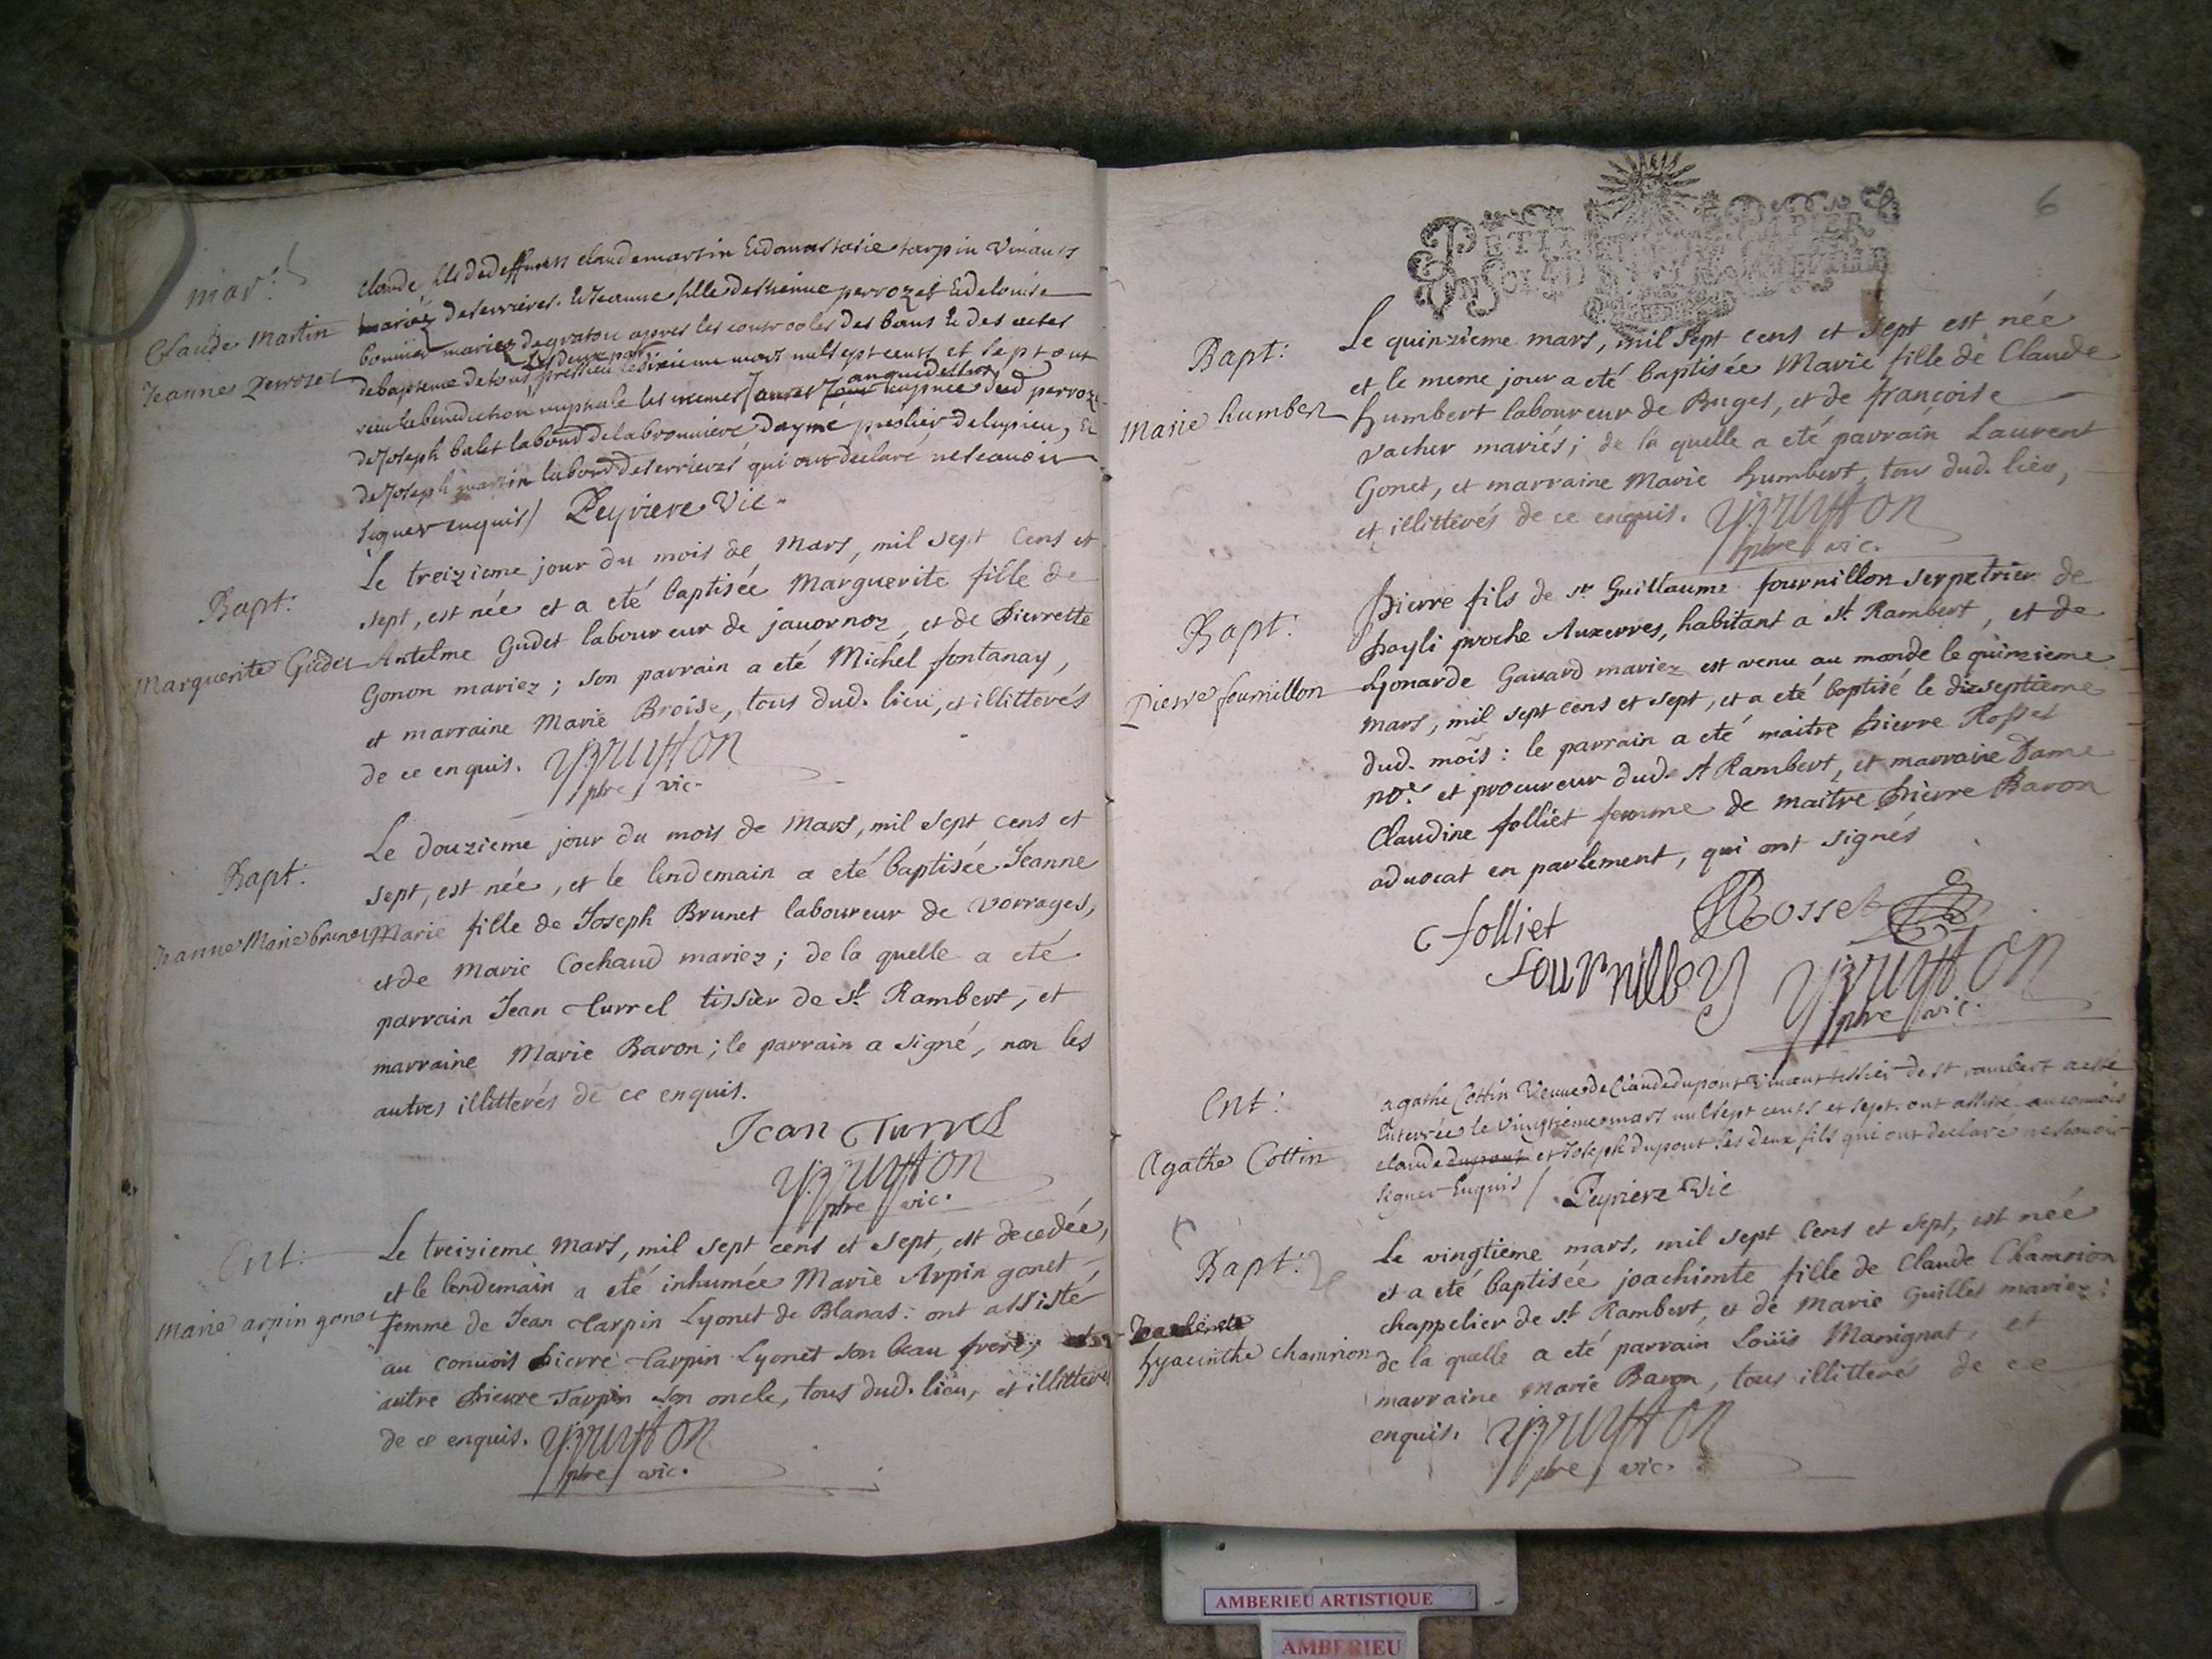 mar:
Claude Martin
Jeanne perrozet
Claude fils de deffuncts claude martin Et d'annastasie tarpin vivants
mariez de serrieres. Et Jeanne fille d'estienne perrozet Et de louise
bonnier mariez de gratou apres les controoles des bans Et des actes
de bapteme de tous les deux par le dixieme mars mil sept cents et sept ont
receu la benediction nuptiale les
de Joseph balet labour de la bronniere dayme preslier de lupieu, Et
de Joseph martin labour de serrieres qui ont declaré ne scavoir
signer enquis / Peyriere Vic.
Bapt:
Marguerite Gudet
Le treizieme jour du mois de Mars, mil sept cens et
sept, est née et a eté baptisée Marguerite fille de
Antelme Gudet laboureur de javornoz, et de Pierrette
Gonon mariez; son parrain a eté Michel fontanay,
et marraine Marie Broise, tous dud. lieu, et illitterés
de ce enquis.
ptre vic.
Bapt.
Jeanne Marie brunet
Le douzieme jour du mois de Mars, mil sept cens et
sept, est née, et le lendemain a eté baptisée Jeanne
Marie fille de Joseph Brunet laboureur de vorrages,
et de Marie Cochaud mariez; de la quelle a eté
parrain Jean Turrel tissier de st. Rambert, et
marraine Marie Baron; le parrain a signé, non les
autres illitterés de ce enquis.
Jean Turrel
ptre vic.
Ent:
Marie arpin gonet
Le treizieme Mars, mil sept cens et sept, est decedée,
et le lendemain a eté inhumée Marie Arpin gonet
femme de Jean Tarpin Lyonet de Blanas: ont assisté
au convois Pierre Tarpin Lyonet son beau frere,
autre Pierre Tarpin son oncle, tous dud. lieu, et illitterés
de ce enquis.
ptre vic.
6
PETIT PAPIER
Bapt:
Marie humbert
Le quinzieme mars, mil sept cens et sept est née
et le meme jour a eté baptisée Marie fille de Claude
humbert laboureur de Buges, et de françoise
vacher mariés; de la quelle a eté parrain Laurent
Gonet, et marraine Marie humbert, tous dud. lieu,
et illitterés de ce enquis.
ptre vic.
Bapt:
Pierre fournillon
Pierre fils de sr. Guillaume fournillon serpetrier de
Poyli proche Auxerres, habitant a st. Rambert, et de
Lyonarde Gavard mariez est venu au monde le quinzieme
mars, mil sept cens et sept, et a eté baptisé le dixseptieme
dud. mois: le parrain a eté maitre Pierre Rosset
nore. et procureur dud. st Rambert, et marraine Dame
Claudine folliet femme de maitre Pierre Baron
advocat en parlement, qui ont signés
C folliet
Rosset
ptre vic.
Ent:
Agathe Cottin
agathe Cottin Veuve de Claude dupont vivant tissier de st rambert a esté
Enterrée le vingtieme mars mil sept cents et sept. ont assisté au convois
claude dupont et Joseph dupont ses deux fils qui ont declaré ne scavoir
signer Enquis / Peyriere Vic
Bapt:
hyacinthe chamrion
Le vingtieme mars, mil sept cens et sept, est née
et a eté baptisée joachimte fille de Claude Chamrion
chappelier de st. Rambert, et de Marie Guillet mariez;
de la quelle a eté parrain Loüis Manignat, et
marraine Marie Baron, tous illitterés de ce
enquis.
ptre vic.
AMBERIEU ARTISTIQUE
AMBERIEU